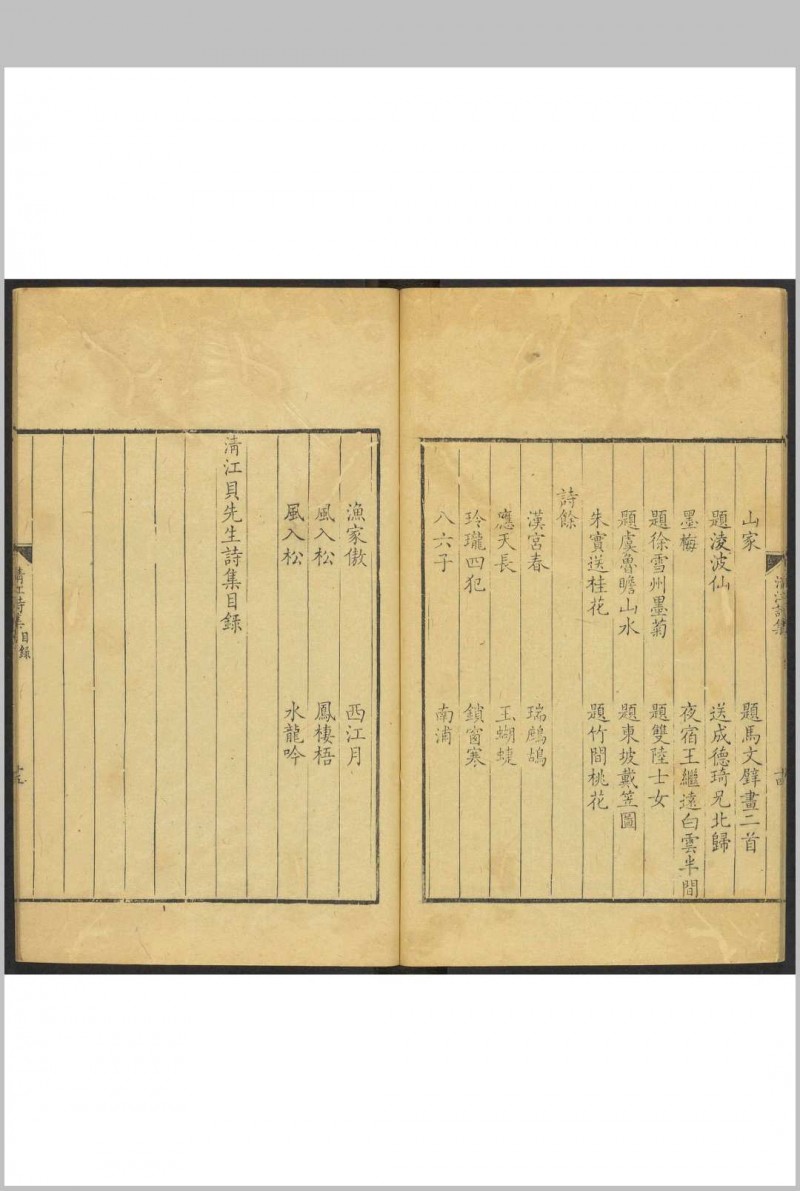 山家　題馬文璧畫二首
題淩波仙　送成德琦兄北歸
墨梅　夜宿王繼遠白雲半間
題徐雪州墨菊　題雙陸士女
題虞魯瞻山水　題東坡戴笠圖
朱實送桂花　題竹間桃花
詩餘
漢宮春　瑞鷓鴣
應天長　玉蝴蝶
玲瓏四犯　鎖窗寒
八六子　南浦
漁家傲　西江月
風入松　鳳棲梧
風入松　水龍吟
清江貝先生詩集目録
清江詩集目録